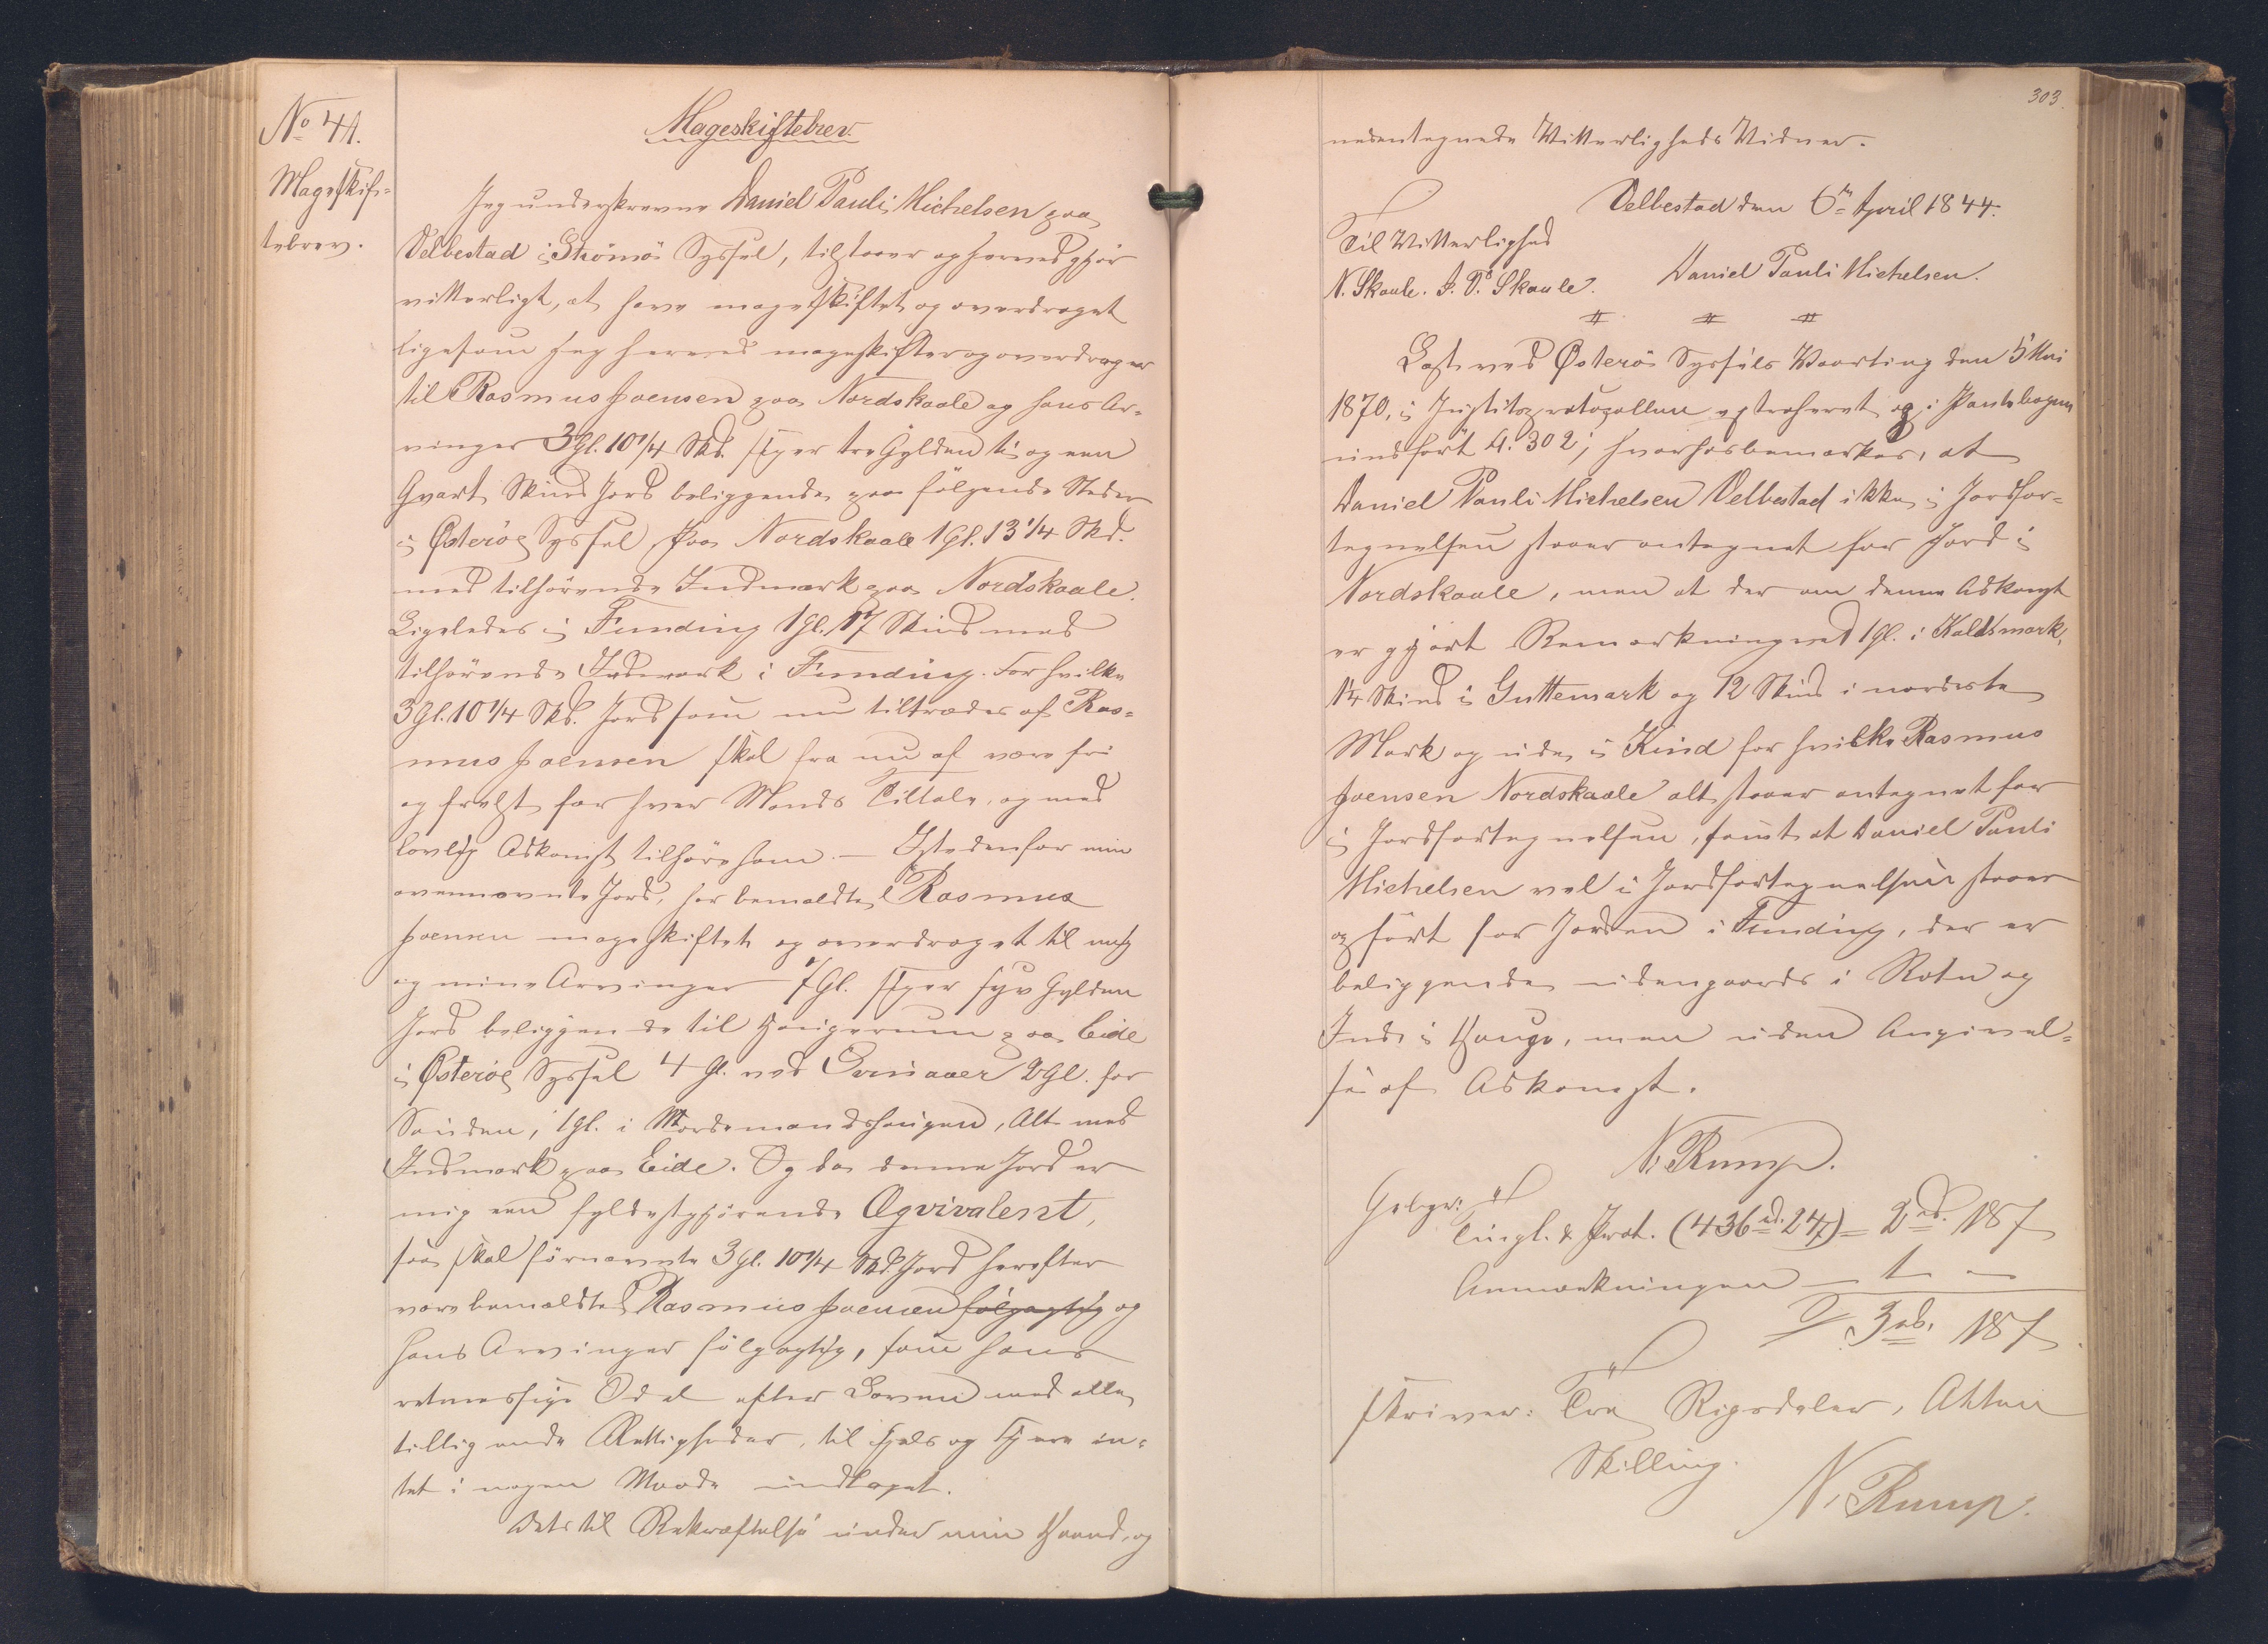 No 41.
Mageskif-
tebrev.
Mageskiftebrev
Jeg underskrevne Daniel Pauli Michelsen paa
Velbestad i Strömö Syssel, tilstaaer og herved gjør
vitterligt, at have mageskiftet og overdraget
ligesom jeg herved mageskifter og overdrager
til Rasmus Joensen paa Nordskaale og hans Ar-
vinger 3 Gl. 10 1/4 Skd. siger tre Gylden ti og een
Qvart Skind Jord beliggende paa følgende Steder
i Österöe Syssel, paa Nordskaale 1 Gl. 13 1/4 Skd.
med tilhörende Indmark paa Nordskaale.
Ligeledes i Funding 1 Gl. 17 Skind med
tilhörende Indmark i Funding. For hvilke
3 Gl. 10 1/4 Skd. Jord som nu tiltrædes af Ras-
mus Joensen skal fra nu af være fri
og frelst for hver Mands Tiltale, og med
lovlig Adkomst tilhøre ham. — Istedenfor min
ovennævnte Jord, har bemældte Rasmus
Joensen mageskiftet og overdraget til mig
og mine Arvinger 7 Gl. siger syv Gylden
Jord beliggende til paa Eide
i Österöe Syssel 4 Gl. ved 2 Gl. for
Sanden, 1 Gl. i Nordmandshaugen, Alt med
Indmark paa Eide. Og da denne Jord er
mig en fyldestgjørende Æqvivalent,
saa skal førnævnte 3 Gl. 10 1/4 Skd. Jord herefter
være bemældte Rasmus Joensen følgagtig og
hans Arvinger følgagtig, som hans
retmessige Odel efter Loven med alle
tillig ende Rettigheder, til Fjelds og Fjære in-
tet i nogen Maade undtaget.
Dets til Bekræftelse under min Haand, og
303.
undertegnede Vitterligheds Vidner.
Velbestad den 6te April 1844.
Til Vitterlighed
N. Skaale. J. P. Skaale. Daniel Pauli Michelsen.
Læst ved Österö Syssels Vaarting den 5 Mai
1870, i Justitsprotocollen extraheret og i Pantebogen
indført f. 302; hvorhos bemærkes, at
Daniel Pauli Michelsen Velbestad ikke i Jordfor-
tegnelsen staaer antegnet for Jord i
Nordskaale, men at der om denne Adkomst
er gjört Bemærkning ved 1 Gl. i Kaldsmark,
14 Skind i Guttemark og 12 Skind i nordeste
Mark og ude i Kind for hvilke Rasmus
Joensen Nordskaale alt staaer antegnet for
i Jordfortegnelsen, samt at Daniel Pauli
Michelsen vel i Jordfortegnelsen staaer
opført for Jorden i Funding, der er
beliggende udengaards i Rotu og
Inde i Hauge, men uden Angivel-
se af Adkomst.
N. Rump.
Gebyr:
Tingl. & Prot. (436 ad. 247) = 2 rd. 18 ſ
Anmærkningen — 1 —
3 rd. 18 ſ
skriver: Tre Rigsdaler, Atten
Skilling.
N. Rump.